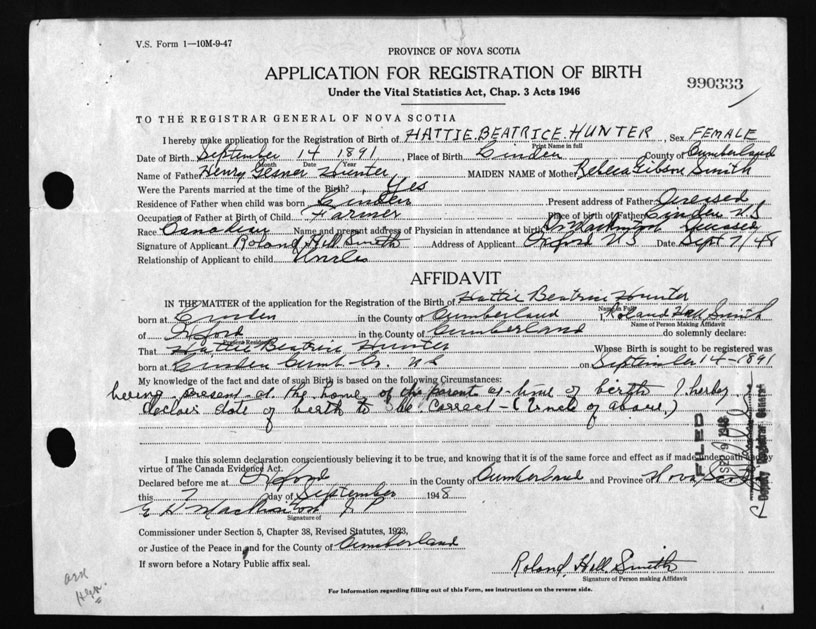 V.S. Form 1—10M-9-47
PROVINCE OF NOVA SCOTIA
APPLICATION FOR REGISTRATION OF BIRTH
990333
Under the Vital Statistics Act, Chap. 3 Acts 1946
TO THE REGISTRAR GENERAL OF NOVA SCOTIA
I hereby make application for the Registration of Birth of HATTIE. BEATRICE. HUNTER, Sex FEMALE
Print Name in full
Date of Birth September 14 1891, Place of Birth County of Cumberland
Month Date Year
Name of Father Henry Gesner Hunter MAIDEN NAME of Mother Smith
Were the Parents married at the time of the Birth? Yes
Residence of Father when child was born Present address of Father
Occupation of Father at Birth of Child Farmer Place of birth of Father N.S
Race Canadian Name and present address of Physician in attendance at birth Dr
Signature of Applicant Roland Hall Smith Address of Applicant Oxford N S Date Sept 7/48
Relationship of Applicant to child Uncle
AFFIDAVIT
IN THE MATTER of the application for the Registration of the Birth of Hattie Beatrice Hunter
Name in Full
born at in the County of Cumberland Roland Hall Smith
Name of Person Making Affidavit
of Oxford in the County of Cumberland do solemnly declare:
Present Residence
That Hattie Beatrice Hunter Whose Birth is sought to be registered was
born at Cumb. Co. N S on September 14-1891
My knowledge of the fact and date of such Birth is based on the following Circumstances:
being present at the home of the parent at time of birth I herby
declair date of birth to be correct - (Uncle of above.)
FILED
SEP 9 1948
Deputy Registrar General
I make this solemn declaration conscientiously believing it to be true, and knowing that it is of the same force and effect as if made under oath by
virtue of The Canada Evidence Act.
Declared before me at Oxford in the County of Cumberland and Province of Nova Scotia
this 7 day of September 1948
E H J P
Signature of
Commissioner under Section 5, Chapter 38, Revised Statutes, 1923,
or Justice of the Peace in and for the County of Cumberland
If sworn before a Notary Public affix seal.
Roland Hall Smith
Signature of Person making Affidavit
For Information regarding filling out of this Form, see instructions on the reverse side.